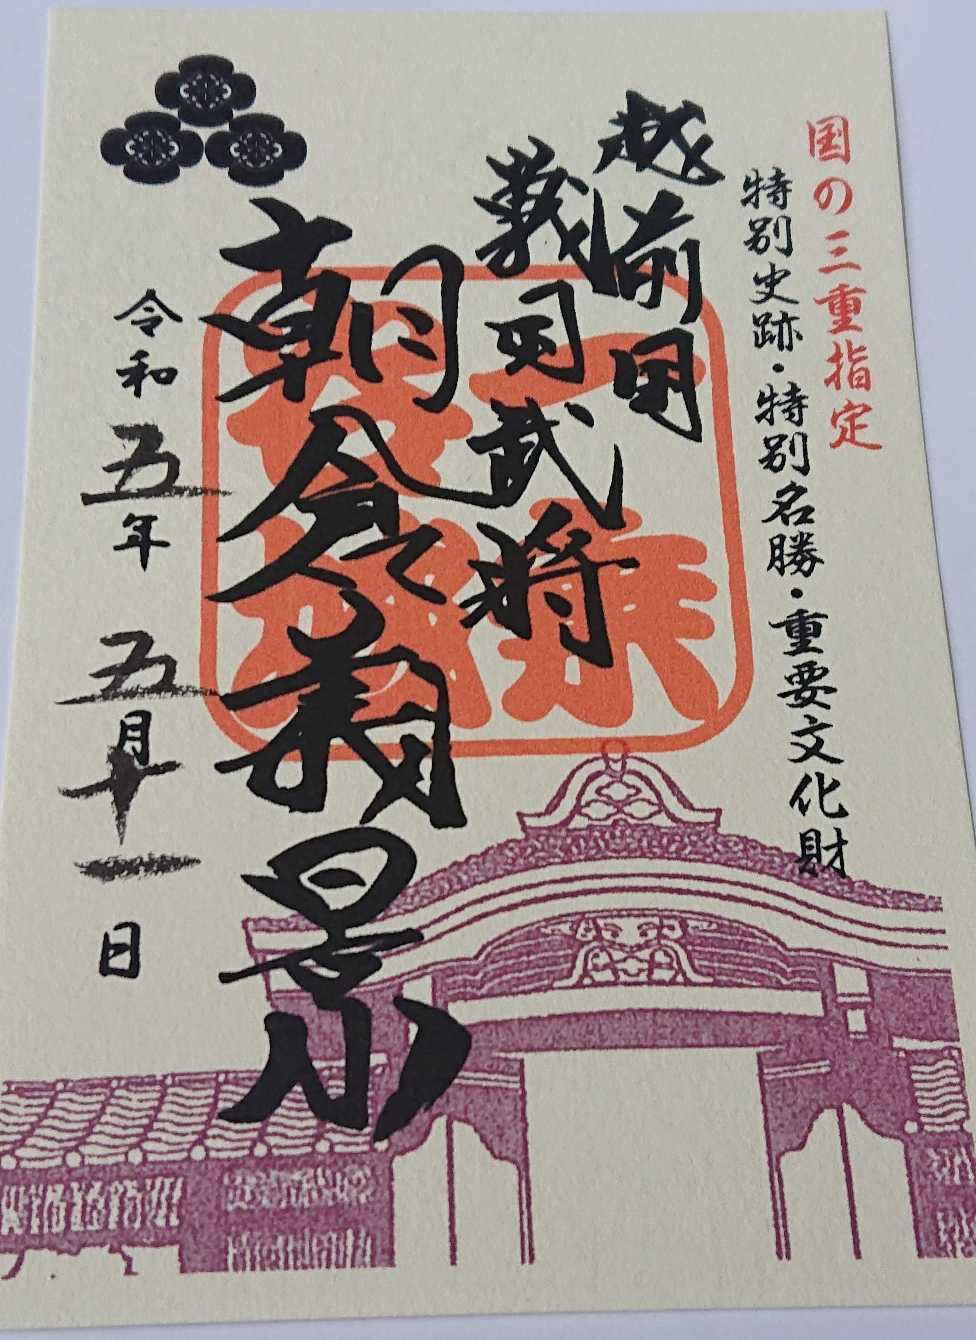 国の三重指定
特別史跡・特別名勝・重要文化財
越前国
戦国武将
朝倉義景
令和五年 五月十一日